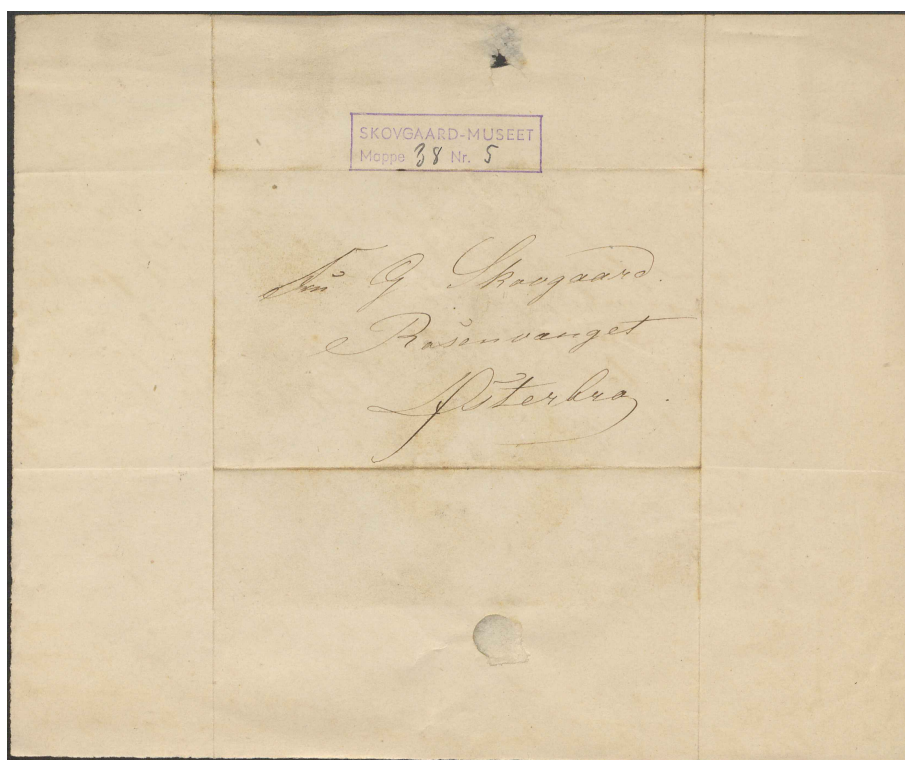 SKOVGAARD-MUSEET
Mappe 38 Nr. 5
Fru G Skovgaard.
Rosenvanget
Østerbro.